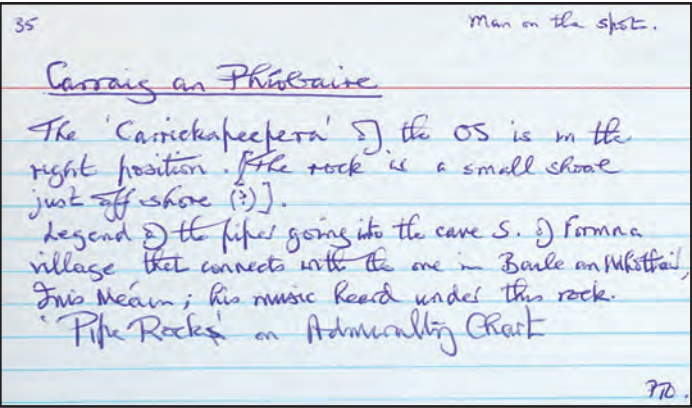 35 Man on the spot.
Carraig an Phíobaire
The 'Carrickapeepera' of the OS is in the
right position. [The rock is a small shoal
just off shore (?)].
Legend of the piper going into the cave S. of Formna
village that connects with the one in Baile an Mhothail,
Inis Meáin; his music heard under this rock.
'Pipe Rocks' on Admiralty Chart
PTO.